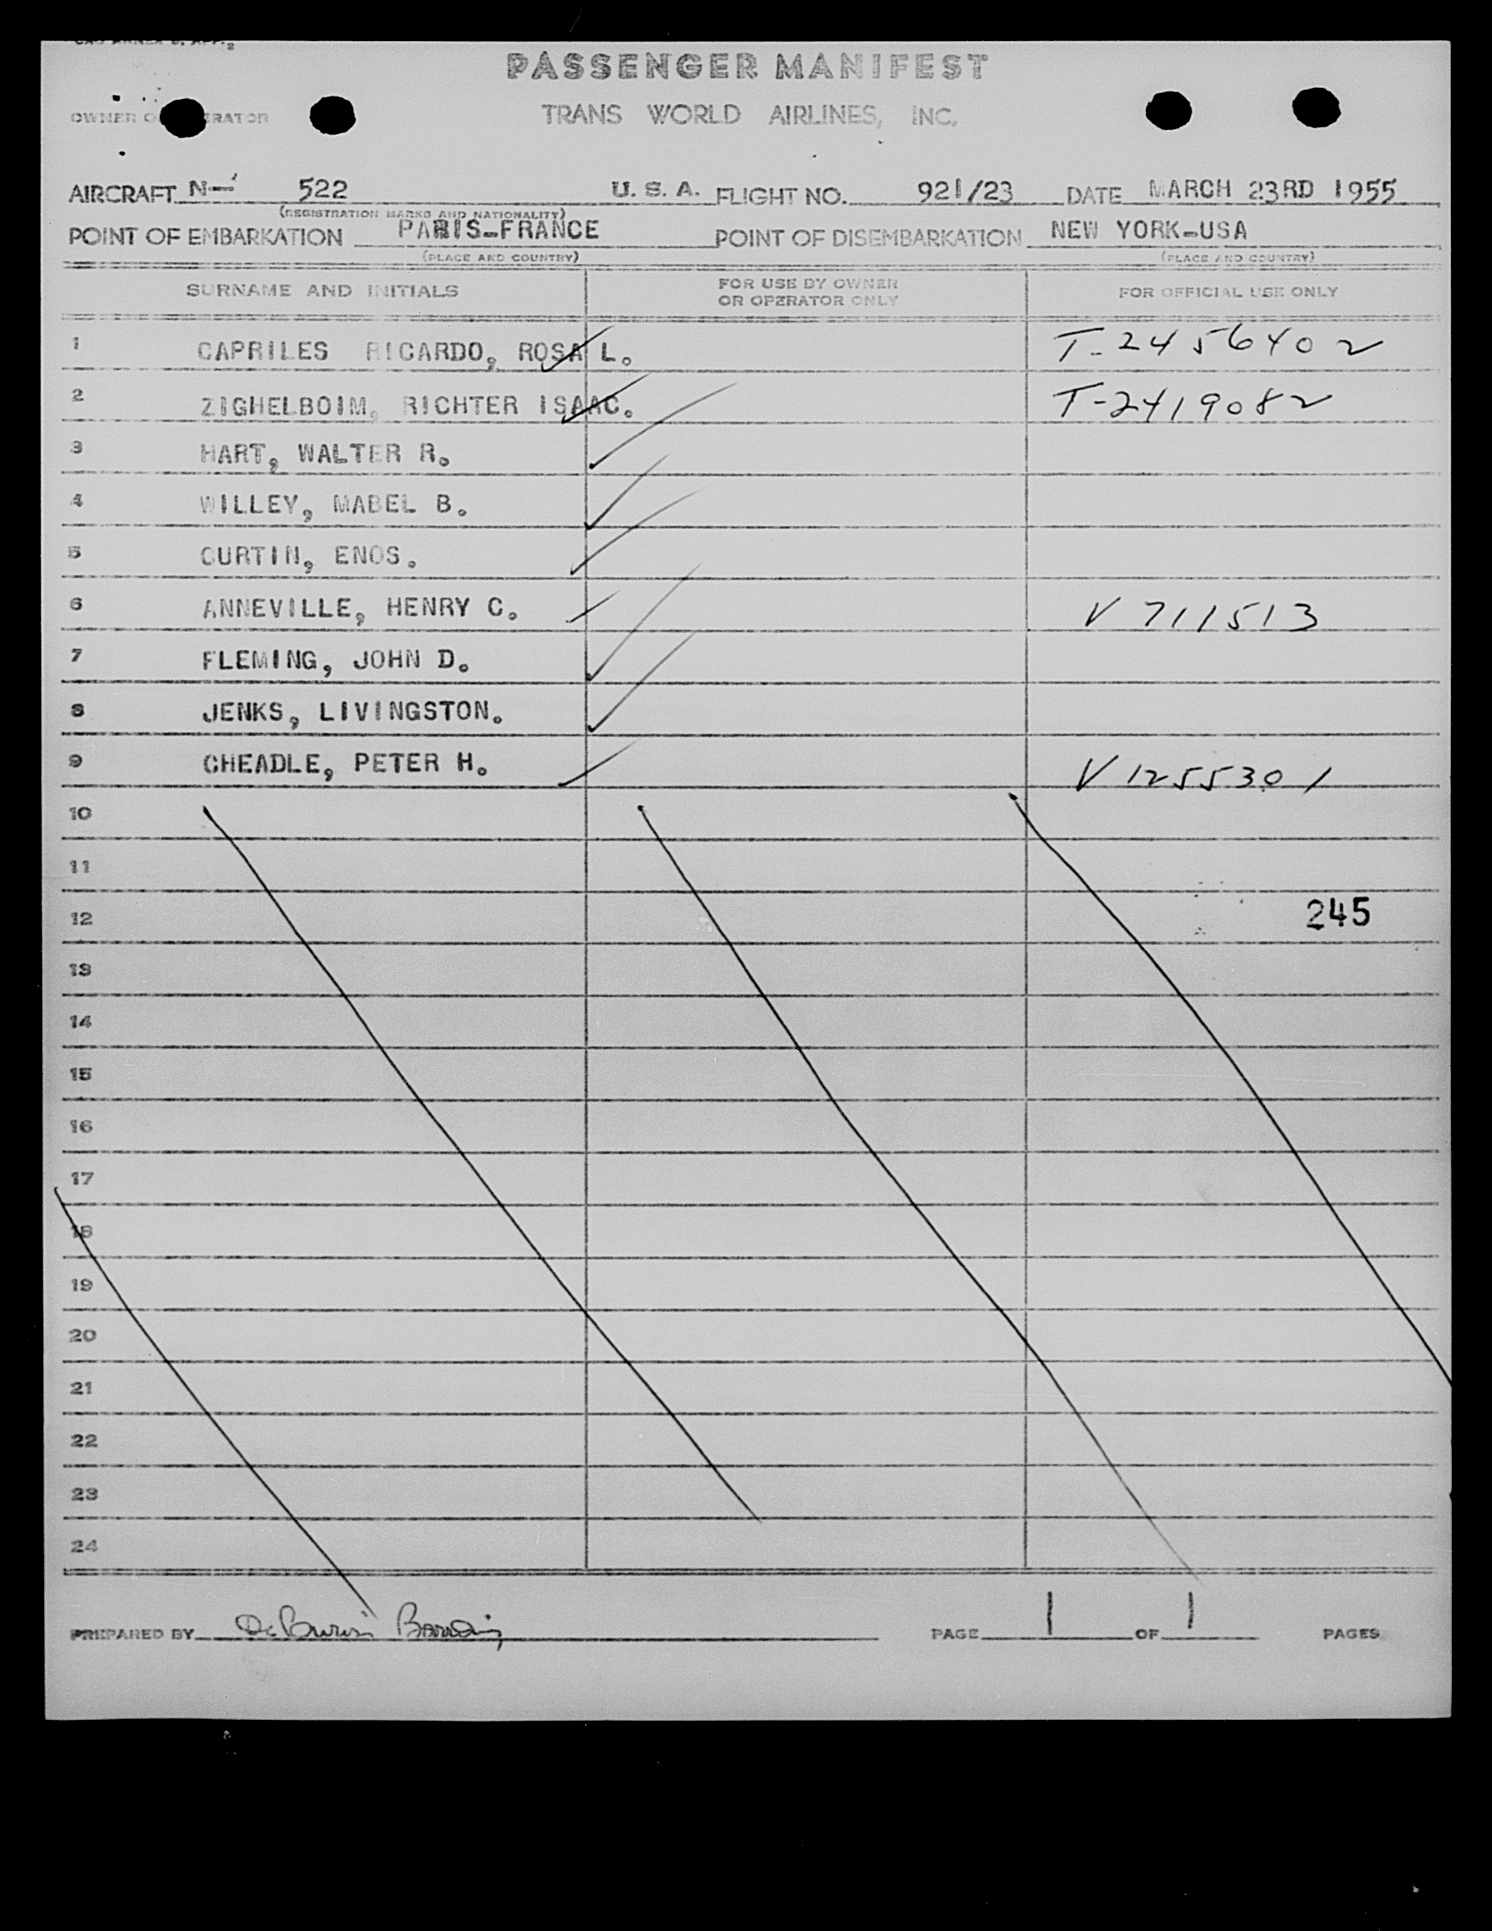 PASSENGER MANIFEST
OWNER O ERATOR
TRANS WORLD AIRLINES, INC.
AIRCRAFT N- 522 U. S. A. FLIGHT NO. 921/23 DATE MARCH 23RD 1955
(REGISTRATION MARKS AND NATIONALITY)
POINT OF EMBARKATION PARIS-FRANCE POINT OF DISEMBARKATION NEW YORK-USA
(PLACE AND COUNTRY) (PLACE AND COUNTRY)
SURNAME AND INITIALS FOR USE BY OWNER OR OPERATOR ONLY FOR OFFICIAL USE ONLY
1 CAPRILES RICARDO, ROSA L. T-2456402
2 ZIGHELBOIM, RICHTER ISAAC. T-2419082
3 HART, WALTER R.
4 WILLEY, MABEL B.
5 CURTIN, ENOS.
6 ANNEVILLE, HENRY C. V 711513
7 FLEMING, JOHN D.
8 JENKS, LIVINGSTON.
9 CHEADLE, PETER H. V 1255301
10
11
12 245
13
14
15
16
17
18
19
20
21
22
23
24
PREPARED BY PAGE 1 OF 1 PAGES